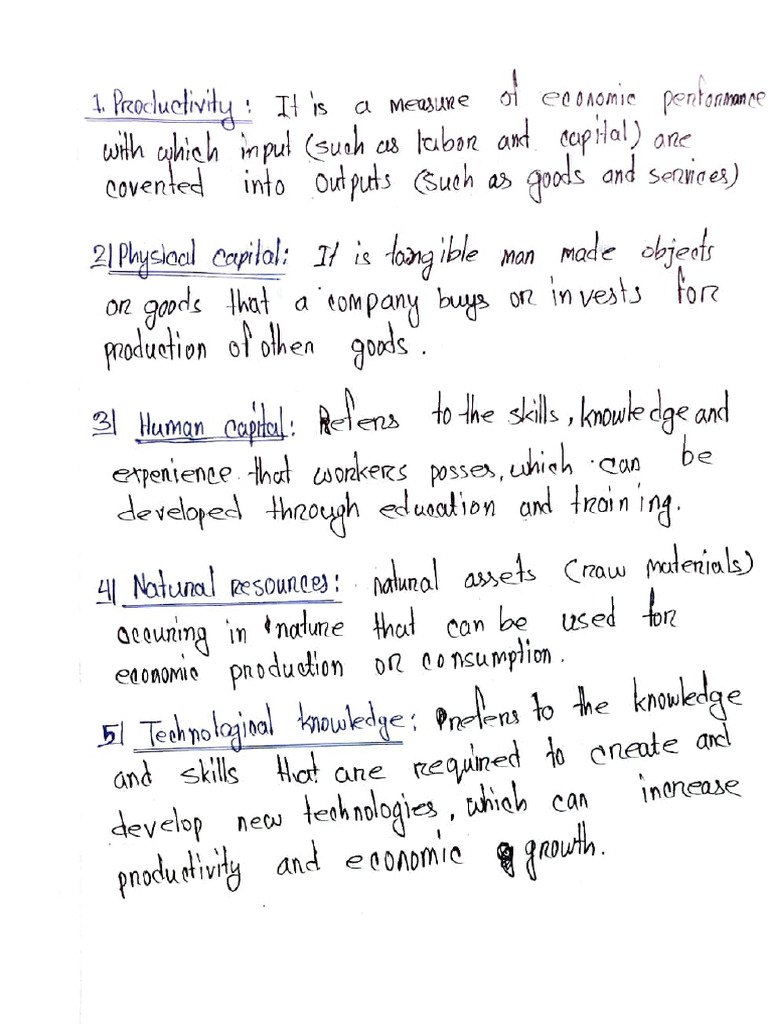 1. Productivity: It is a measure of economic performance
with which input (such as labor and capital) are
covented into outputs (such as goods and services)
2| Physical capital: It is tangible man made objects
or goods that a company buys or invests for
production of other goods.
3| Human capital: Refers to the skills, knowledge and
experience that workers posses, which can be
developed through education and training.
4| Natural resources: natural assets (raw materials)
occuring in nature that can be used for
economic production or consumption.
5| Technological knowledge: refers to the knowledge
and skills that are required to create and
develop new technologies, which can increase
productivity and economic growth.